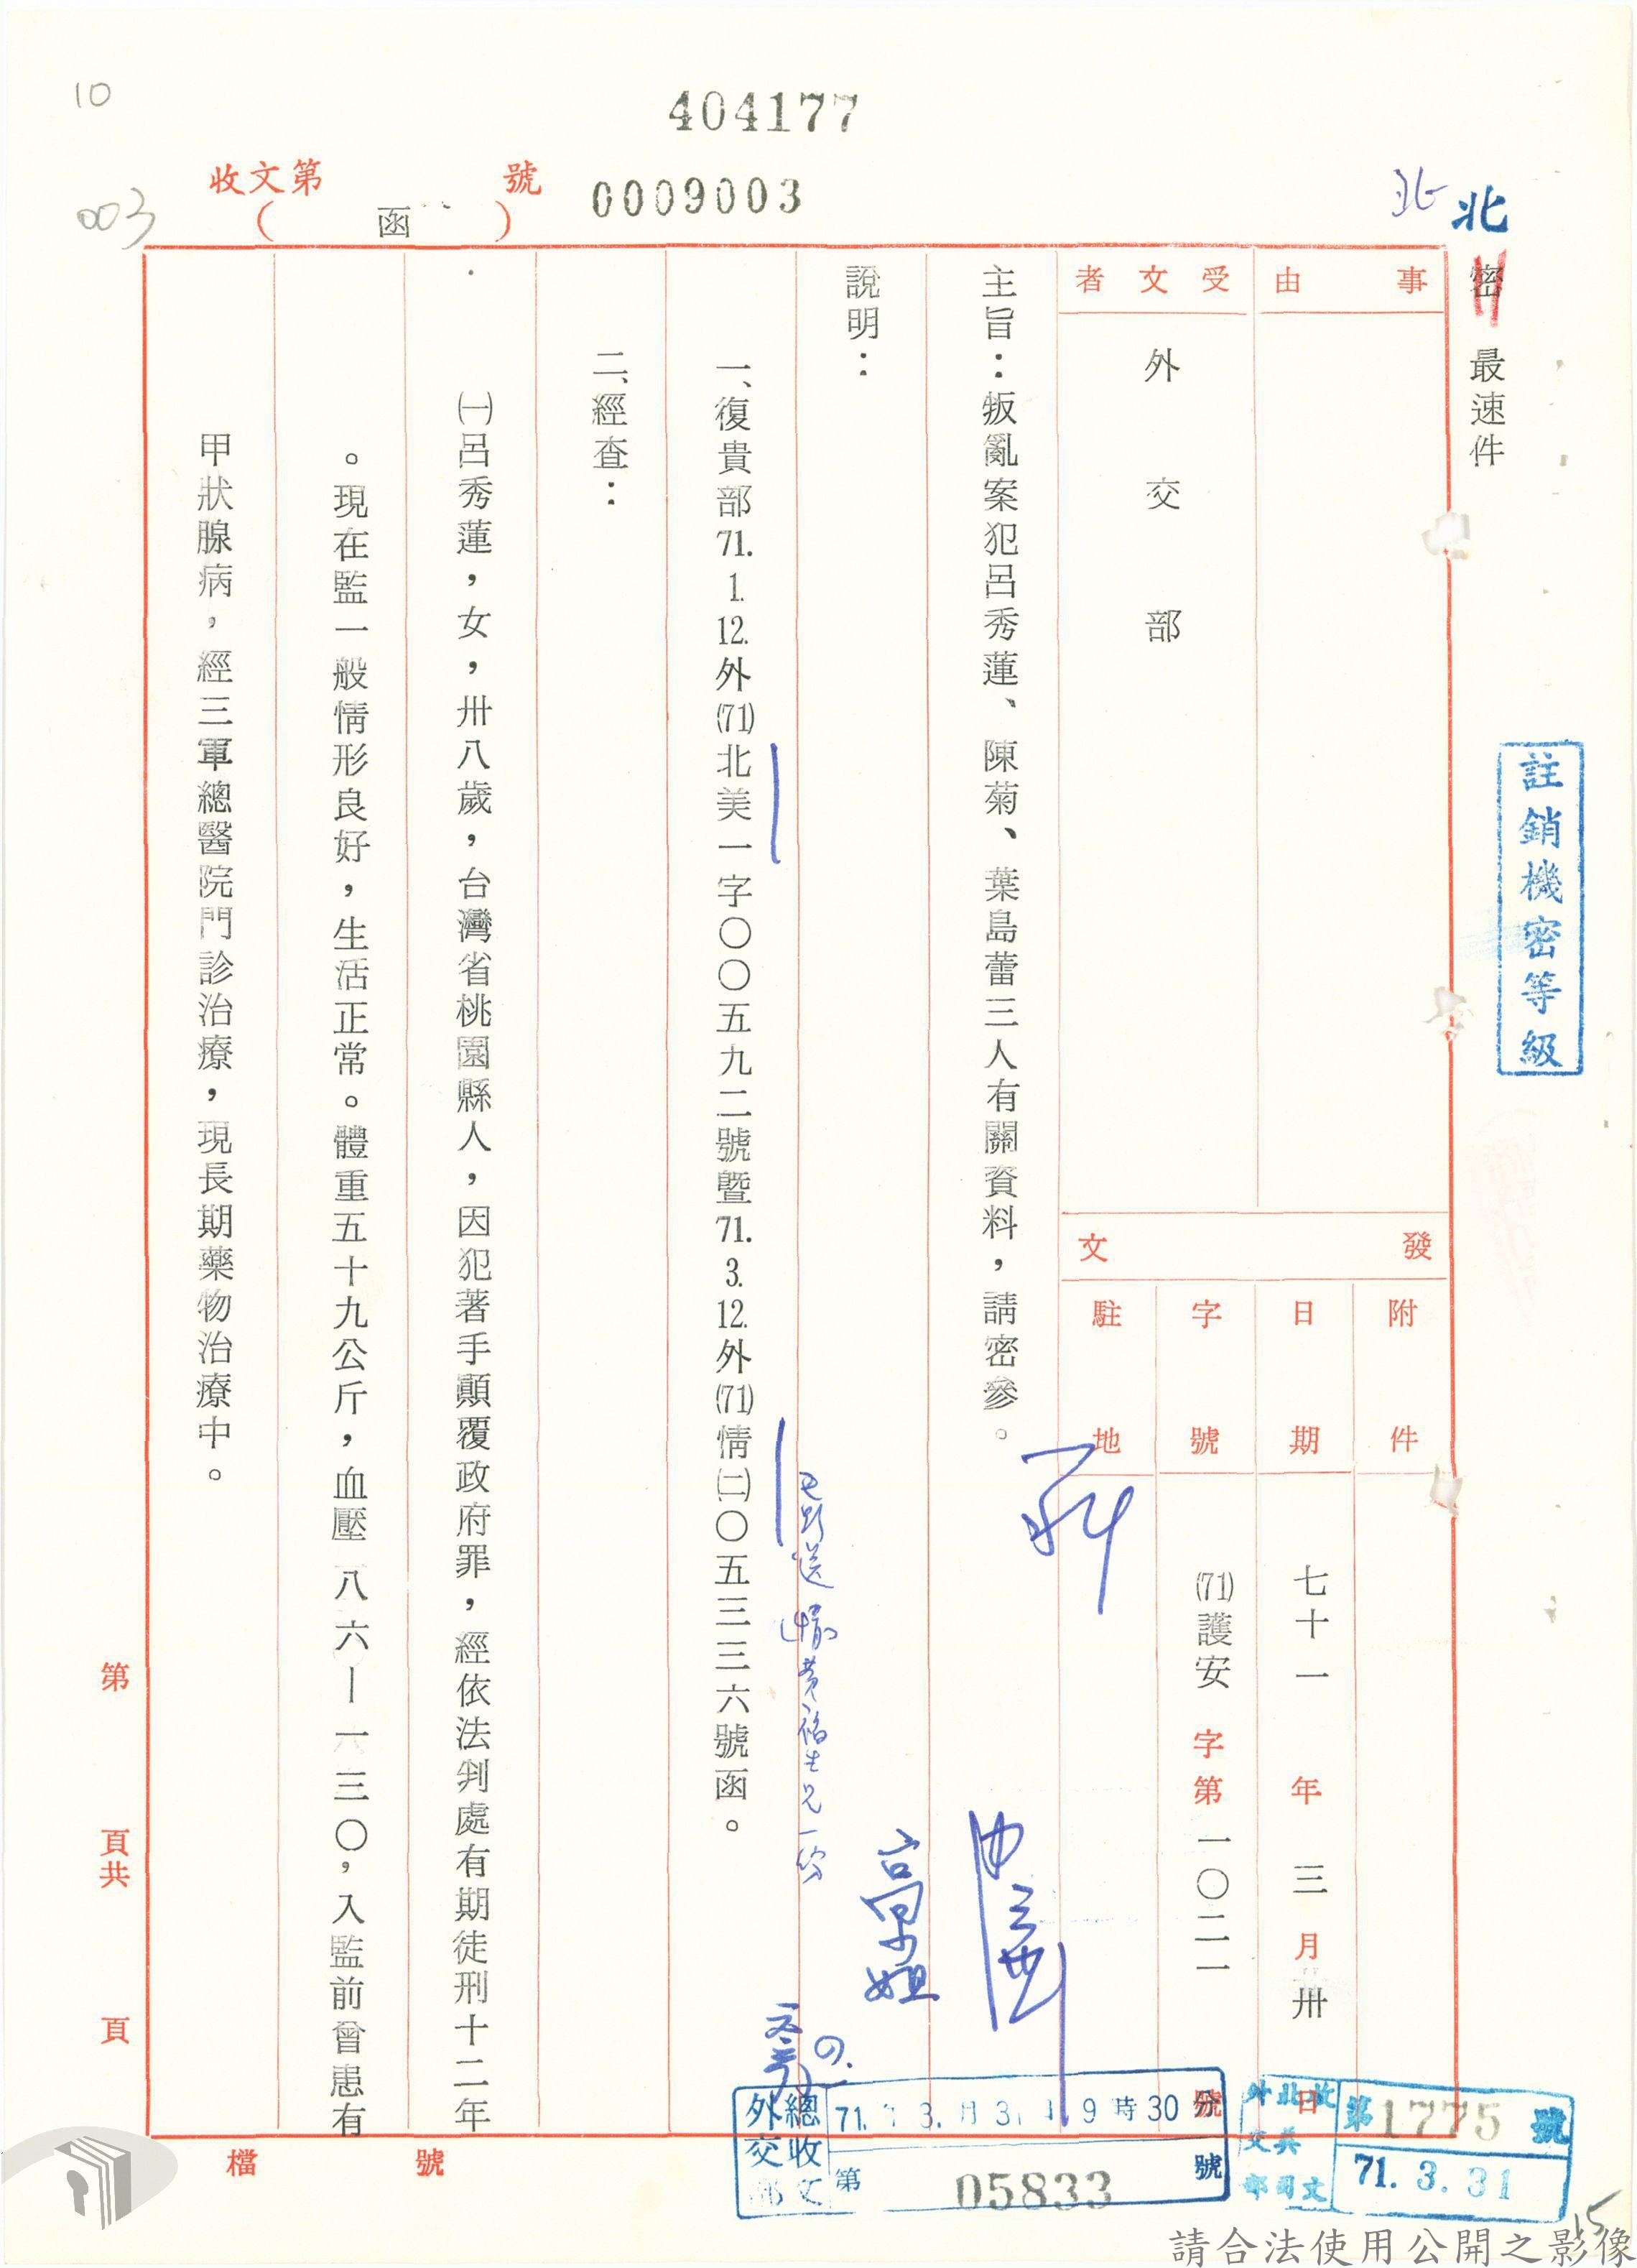 10
404177
收文第 號
0009003
( 函 )
003
北
北
密
最速件
註銷機密等級
事由
受文者
外交部
發文
附件
日期
七十一年三月卅日
字號
(71)護安字第一〇二一號
駐地
主旨：叛亂案犯呂秀蓮、陳菊、葉島蕾三人有關資料，請密參。
說明：
一、復貴部71.1.12.外(71)北美一字〇〇五九二號暨71.3.12.外(71)情㈡〇五三三六號函。
二、經查：
㈠呂秀蓮，女，卅八歲，台灣省桃園縣人，因犯著手顛覆政府罪，經依法判處有期徒刑十二年
。現在監一般情形良好，生活正常。體重五十九公斤，血壓八六—一三〇，入監前曾患有
甲狀腺病，經三軍總醫院門診治療，現長期藥物治療中。
第 頁共 頁
檔 號
外交部總收文
71. 3.月31日9時30
第 05833 號
外交部北美司收文
第1775號
71.3.31
15
請合法使用公開之影像